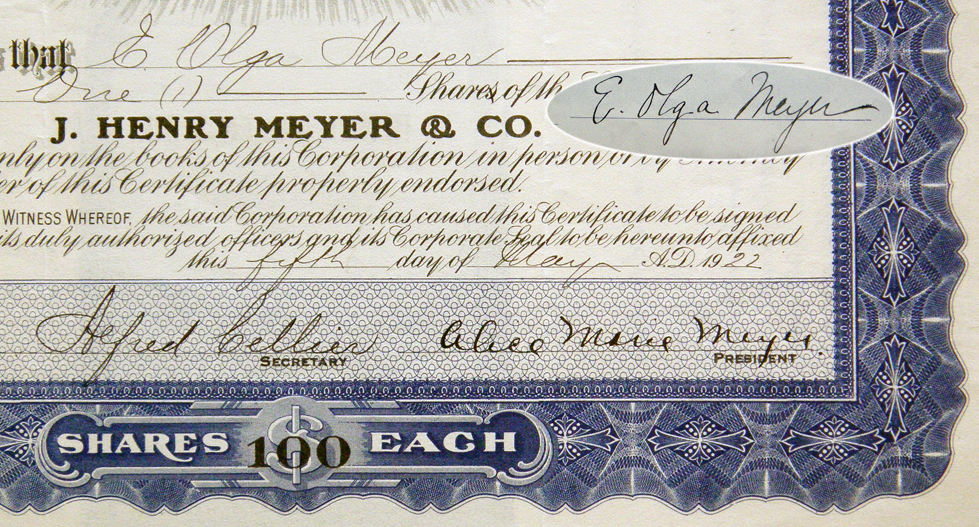 that E. Olga Meyer
One (1) Shares of th
E. Olga Meyer
J. HENRY MEYER & CO.
nly on the books of this Corporation in person or by Attorney
er of this Certificate properly endorsed.
WITNESS WHEREOF, the said Corporation has caused this Certificate to be signed
its duly authorized officers and its Corporate Seal to be hereunto affixed
this fifth day of May A.D. 1922
Alfred Cellier Alice Marie Meyer.
SECRETARY PRESIDENT
SHARES $100 EACH